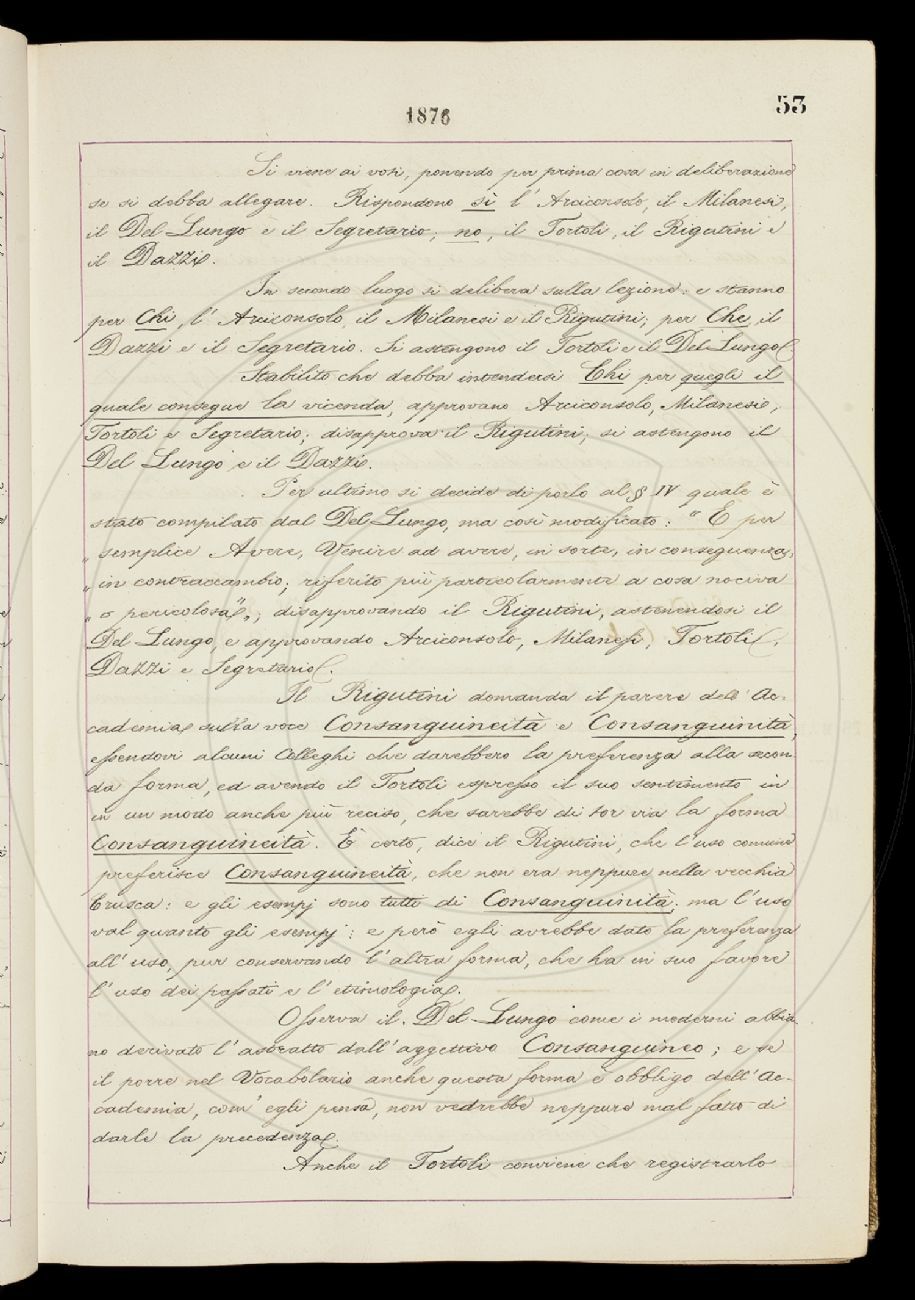 1876
53
Si viene ai voti, ponendo per prima cosa in deliberazione
se si debba allegare. Rispondono sì l' Arciconsolo, il Milanesi,
il Del-Lungo e il Segretario; no, il Tortoli, il Rigutini e
il Dazzi.
In secondo luogo si delibera sulla lezione: e stanno
per Chi, l' Arciconsolo, il Milanesi e il Rigutini; per Che, il
Dazzi e il Segretario. Si astengono il Tortoli e il Del-Lungo
Stabilito che debba intendersi Chi per quegli il
quale consegue la vicenda, approvano Arciconsolo, Milanesi,
Tortoli e Segretario; disapprova il Rigutini, si astengono il
Del Lungo e il Dazzi.
Per ultimo si decide di porlo al § IV quale è
stato compilato dal Del-Lungo, ma così modificato: " E per
„ semplice Avere, Venire ad avere, in sorte, in conseguenza,
„ in contraccambio; riferito più particolarmente a cosa nociva
„ o pericolosa „; disapprovando il Rigutini, astenendosi il
Del Lungo, e approvando Arciconsolo, Milanesi, Tortoli,
Dazzi e Segretario.
Il Rigutini domanda il parere dell' Ac-
cademia sulla voce Consanguineità e Consanguinità,
essendovi alcuni Colleghi che darebbero la preferenza alla secon-
da forma, ed avendo il Tortoli espresso il suo sentimento in
in un modo anche più reciso, che sarebbe di tor via la forma
Consanguineità. È certo, dice il Rigutini, che l'uso comune
preferisce Consanguineità, che non era neppure nella vecchia
Crusca: e gli esempj sono tutti di Consanguinità; ma l'uso
val quanto gli esempj: e però egli avrebbe dato la preferenza
all' uso, pur conservando l'altra forma, che ha in suo favore
l'uso dei passati e l'etimologia.
Osserva il Del-Lungo come i moderni abbia-
no derivato l'astratto dall' aggettivo Consanguineo; e se
il porre nel Vocabolario anche questa forma è obbligo dell' Ac-
cademia, com' egli pensa, non vedrebbe neppure mal fatto di
darle la precedenza.
Anche il Tortoli conviene che registrarlo